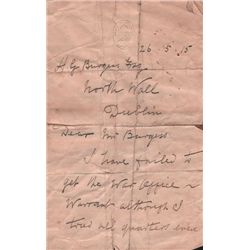 26.5.15
H G Burgess Esq
North Wall
Dublin
Dear Mr Burgess
I have failed to
get the War Office
Warrant although I
tried all quarters even